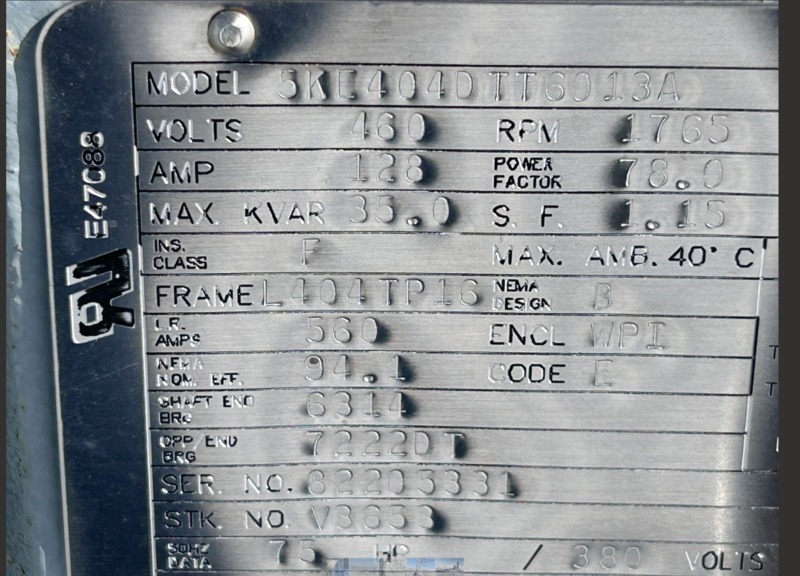 MODEL 5KE404DTT6013A
VOLTS 460 RPM 1765
AMP 128 POWER FACTOR 78.0
MAX. KVAR 35.0 S. F. 1.15
INS. CLASS F MAX. AMB. 40° C
FRAME L404TP16 NEMA DESIGN B
L.R. AMPS 560 ENCL WPI
NEMA NOM. EFF. 94.1 CODE E
SHAFT END BRG 6314
OPP/END BRG 7222DT
SER. NO. 82205331
STK. NO. V3653
50HZ DATA 75 HP / 380 VOLTS
E47088